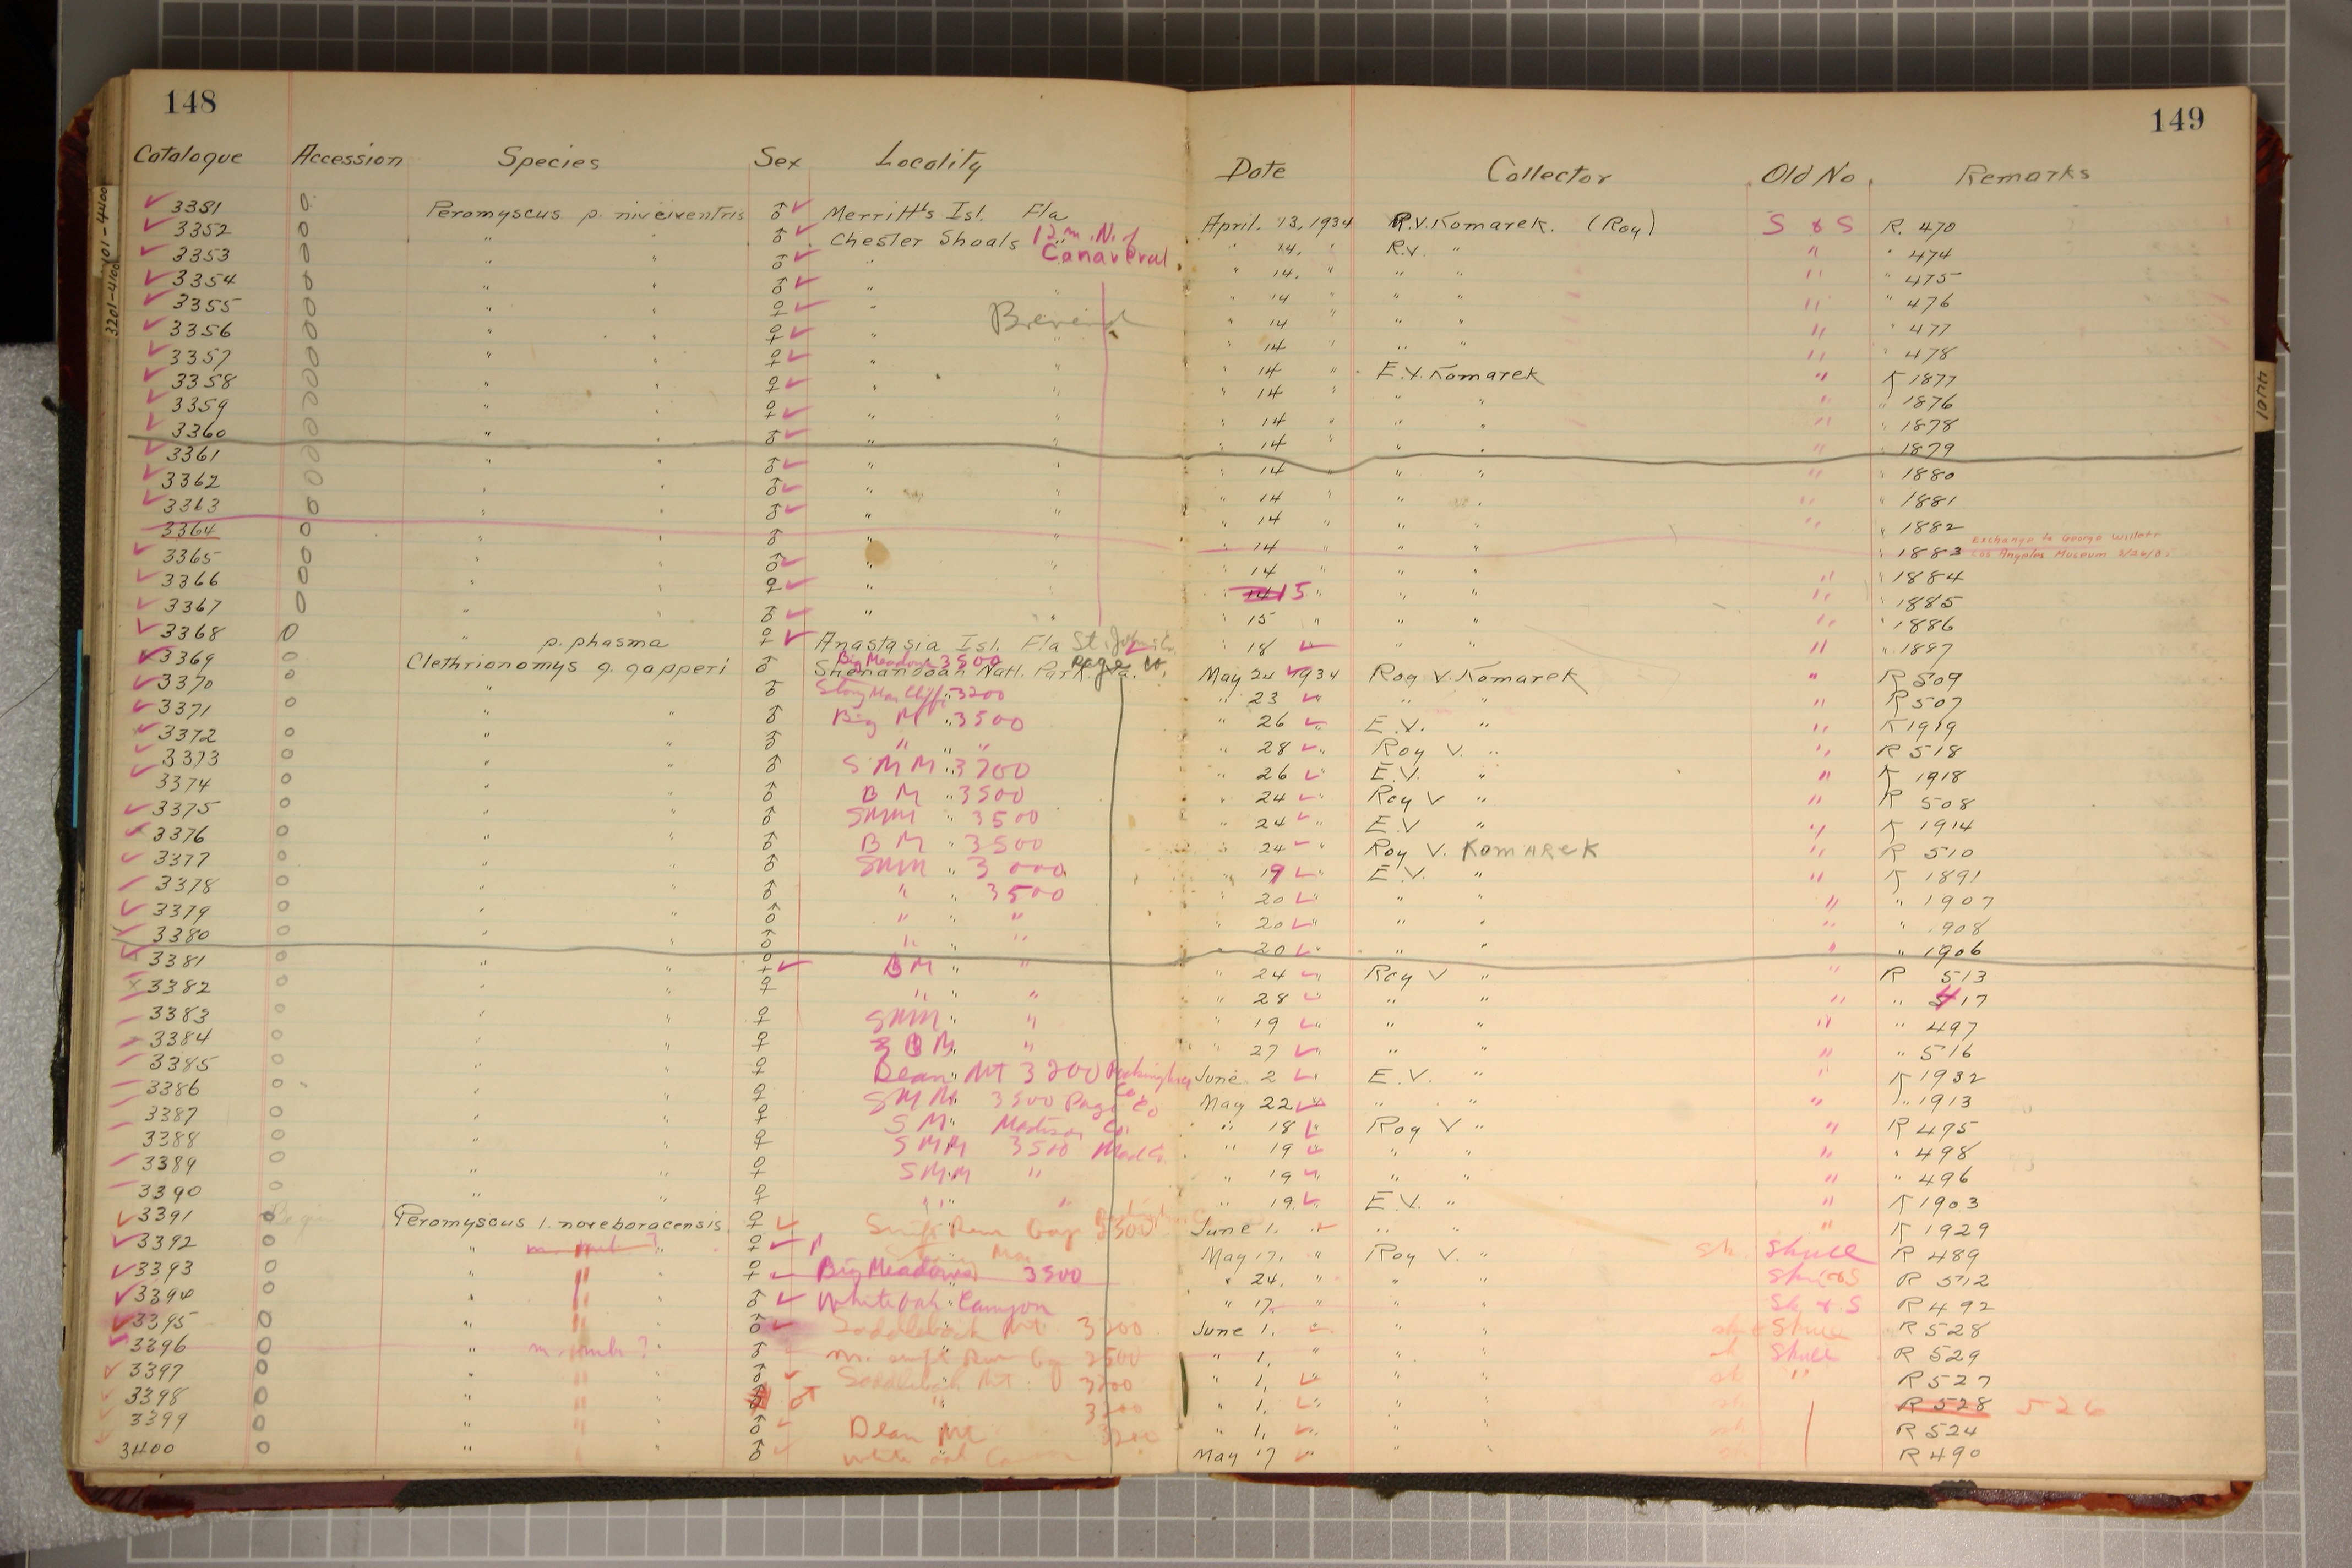 148
149
Catalogue Accession Species Sex Locality Date Collector Old No. Remarks
3381 0 Peromyscus p. niveiventris ♂ ✓ Merritt's Isl. Fla April. 13, 1934 R.V. Komarek. (Roy) S & S R. 470
3352 0 " " ♂ ✓ Chester Shoals 12 m. N. of " 14, " R.V. " " " 474
3353 0 " " ♂ ✓ " Canaveral " 14, " " " " " 475
3354 0 " " ♂ ✓ " " " 14 " " " " " 476
3355 0 " " ♀ ✓ " " 14 " " " " " 477
3356 0 " " ♀ ✓ " " " 14 " " " " " 478
3357 0 " " ♀ ✓ " " " 14 " E.V. Komarek " K 1877
3358 0 " " ♀ ✓ " " " 14 " " " " " 1876
3359 0 " " ♀ ✓ " " " 14 " " " " " 1878
3360 0 " " ♂ ✓ " " " 14 " " " " " 1879
3361 0 " " ♂ ✓ " " " 14 " " " " " 1880
3362 0 " " ♂ ✓ " " " 14 " " " " " 1881
3363 0 " " ♂ ✓ " " " 14 " " " " " 1882
3364 0 " " ♂ " " " 14 " " " " 1883 Exchange to George Willett Los Angeles Museum
3365 0 " " ♂ ✓ " " " 14 " " " " " 1884
3366 0 " " ♀ ✓ " " " 14 15 " " " " " 1885
3367 0 " " ♂ ✓ " " " 15 " " " " " 1886
3368 0 " p. phasma ♀ ✓ Anastasia Isl. Fla St. " 18 ✓ " " " " 1887
3369 0 Clethrionomys g. gapperi ♂ Big Meadows 3500 Shenandoah Natl. Park. Va. Page Co. May 24 ✓ 1934 Roy V. Komarek " R 509
3370 0 " ♂ Stony Man Cliffs 3200 " 23 ✓ " " " R 507
3371 0 " " ♂ Big M " 3500 " 26 ✓ E.V. " " K 1919
3372 0 " " ♂ " " " " 28 ✓ Roy V. " " R 518
3373 0 " " ♂ S M M " 3700 " 26 ✓ E.V. " " K 1918
3374 0 " " ♂ B M " 3500 " 24 ✓ Roy V " " R 508
3375 0 " " ♂ SMM " 3500 " 24 ✓ E.V " " K 1914
3376 0 " " ♂ B M " 3500 " 24 ✓ Roy V. Komarek " R 510
3377 0 " " ♂ SMM " 3000 " 19 ✓ E.V. " " K 1891
3378 0 " " ♂ " " 3500 " 20 ✓ " " " " 1907
3379 0 " " ♂ " " " " 20 ✓ " " " " 1908
3380 0 " " ♂ " " " " 20 ✓ " " " " 1906
3381 0 " " ♀ ✓ BM " " " 24 ✓ Roy V " " R 513
3382 0 " " ♀ " " " " 28 ✓ " " " " 517
3383 0 " " ♀ SMM " " " 19 ✓ " " " " 497
3384 0 " " ♀ B M " " " 27 ✓ " " " " 516
3385 0 " " ♀ Dean Mt 3200 Rockingham Co June 2 ✓ E.V. " " K 1932
3386 0 " " ♀ SMM 3500 Page Co May 22 ✓ " " " " 1913
3387 0 " " ♀ S M " Madison Co. " 18 ✓ Roy V " " R 495
3388 0 " " ♀ SMM 3500 Mad Co. " 19 ✓ " " " " 498
3389 0 " " ♀ SMM " " 19 ✓ " " " " 496
3390 0 " " ♀ " " " 19 ✓ E.V. " " K 1903
3391 0 Peromyscus l. noveboracensis ♀ ✓ Swift Run Gap June 1. ✓ " " " K 1929
3392 0 " " ♀ ✓ May 17, " Roy V. " sk. Skull R 489
3393 0 " " " ♀ ✓ Big Meadows 3500 " 24, " " " R 512
3394 0 " " " ♂ ✓ White Oak Canyon " 17 " " " Sk & S R 492
3395 0 " " " ♂ ✓ Saddleback Mt. 3300 June 1, ✓ " " Skull R 528
3396 0 " " ♂ Swift Run 2500 " 1, " " " Skull R 529
3397 0 " " " ♂ ✓ Saddleback Mt. 3300 " 1, ✓ " " sk " R 527
3398 0 " " " ♂ " " 1, ✓ " " sk R 528 526
3399 0 " " " ♂ ✓ Dean Mt 3200 " 1, ✓ " " sk R 524
3400 0 " " ♂ ✓ White Oak May 17 ✓ " " sk R 490
3201-4100
4401